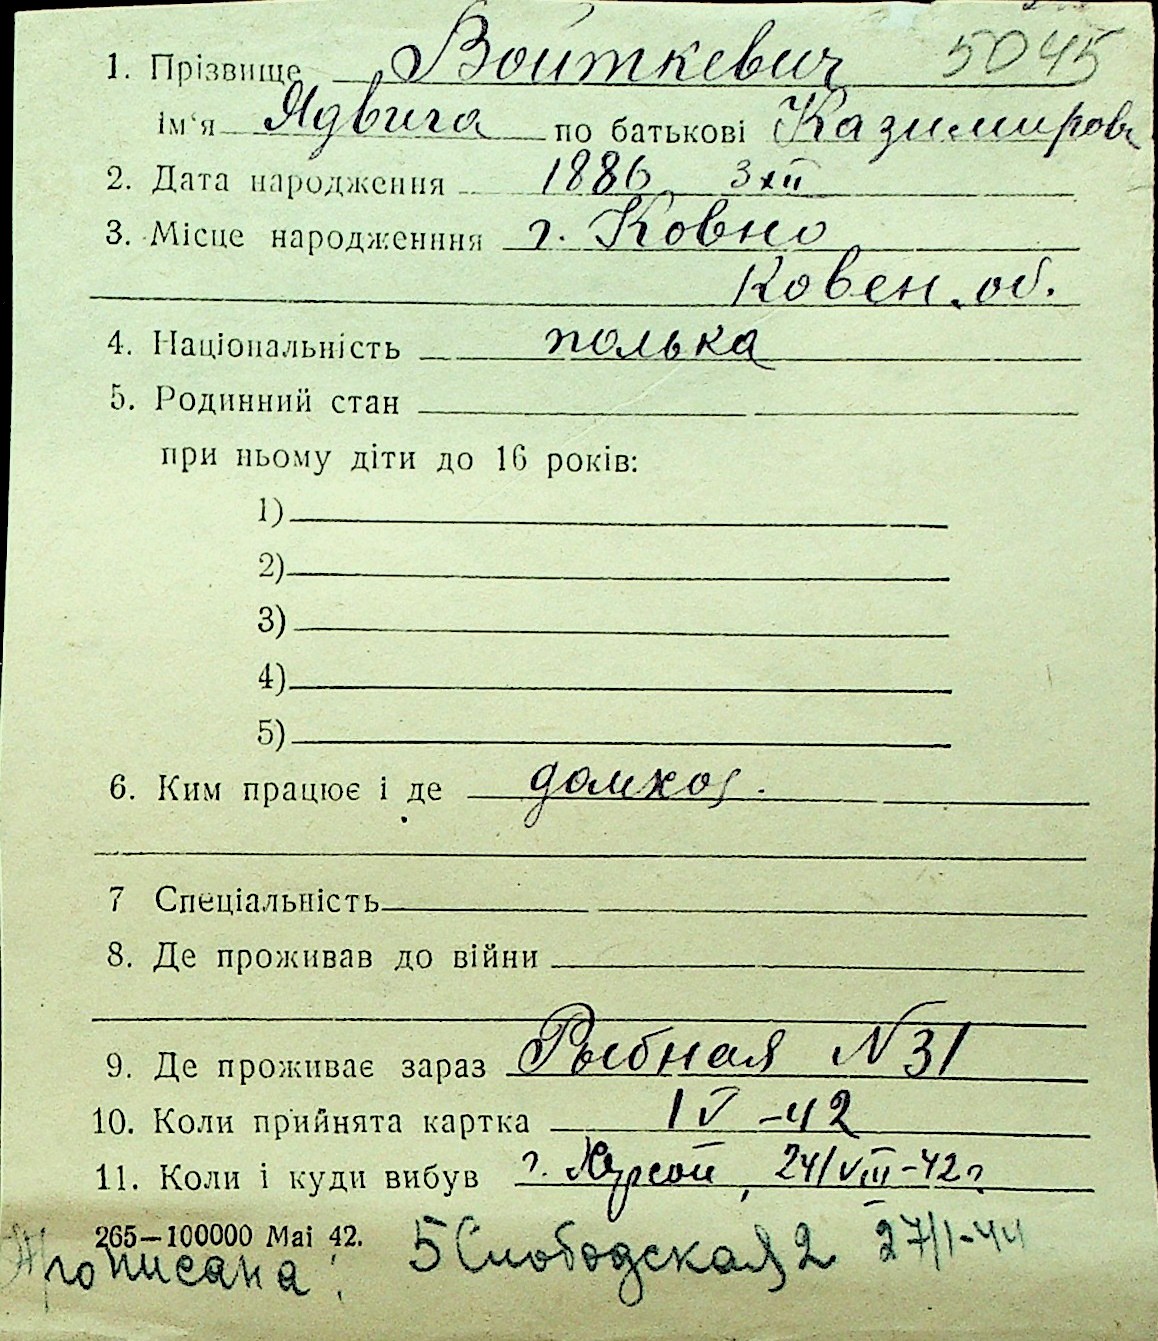 1. Прізвище Войткевич 5045
ім‘я Ядвига по батькові Казимировн
2. Дата народження 1886 3 XII
3. Місце народженння г. Ковно
Ковен. об.
4. Національність полька
5. Родинний стан
при ньому діти до 16 років:
1)
2)
3)
4)
5)
6. Ким працює і де домхоз.
7 Спеціальність
8. Де проживав до війни
9. Де проживає зараз Рыбная N 31
10. Коли прийнята картка 1 V -42
11. Коли і куди вибув г. Херсон, 24/VIII-42 г
265—100000 Mai 42.
Прописана: 5 Слободская 2 27/I-44